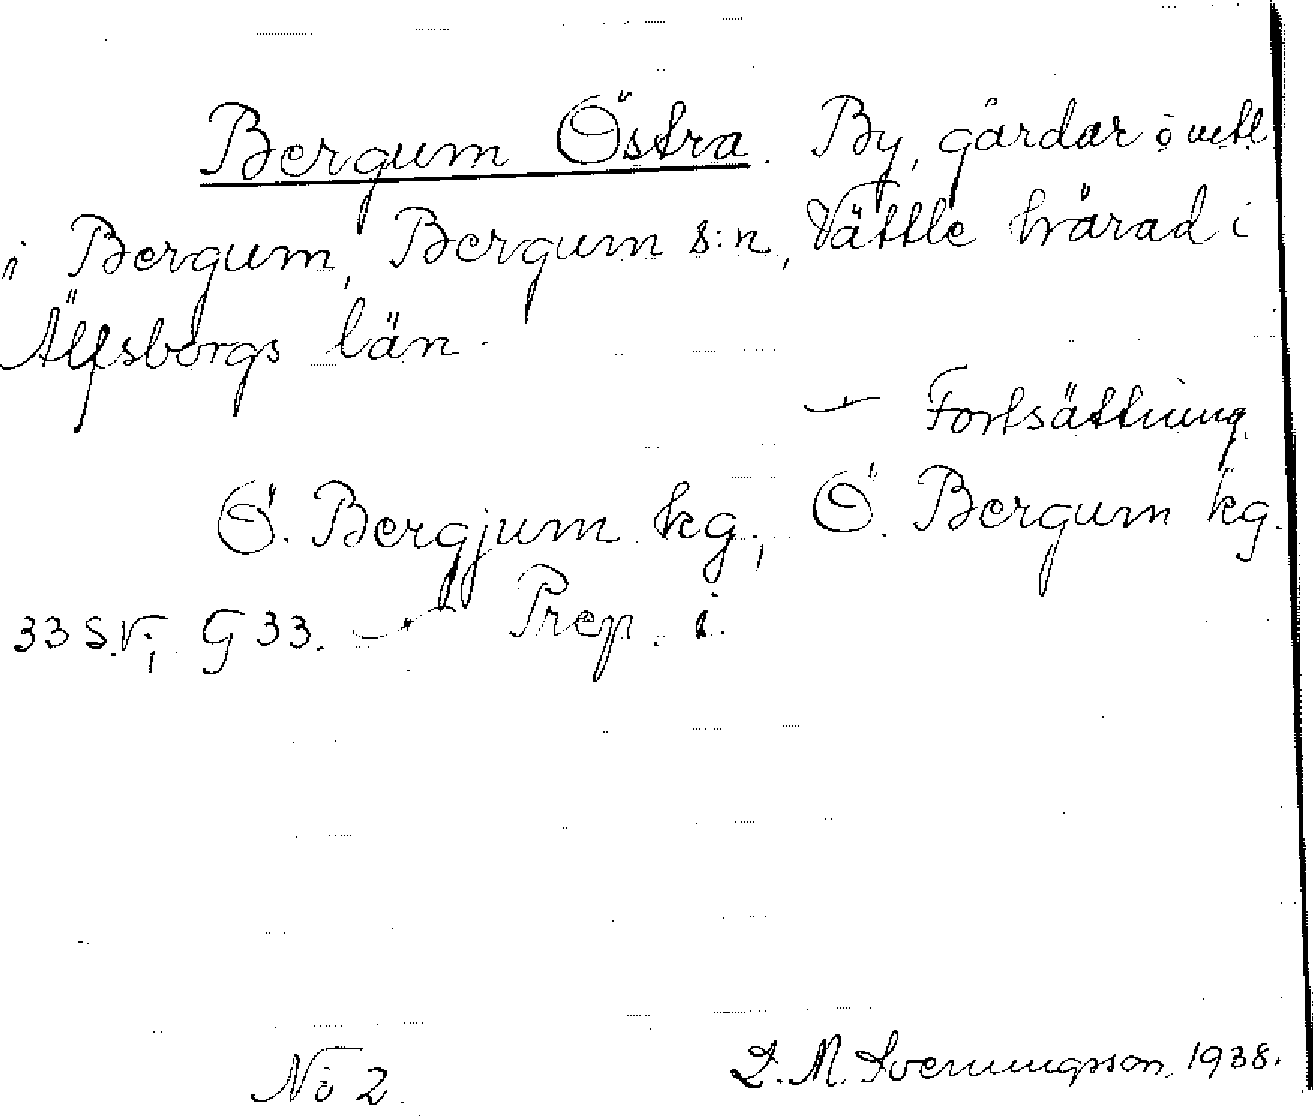 Bergum Östra. By, gårdar o uctl
i Bergum, Bergum s:n, Vättle härad i
Älfsborgs län.
— Fortsättning
Ö. Bergjum kg., Ö. Bergum kg.
33 S.V; G 33. — Prep. i.
No 2. D. M. Svenungsson 1938.